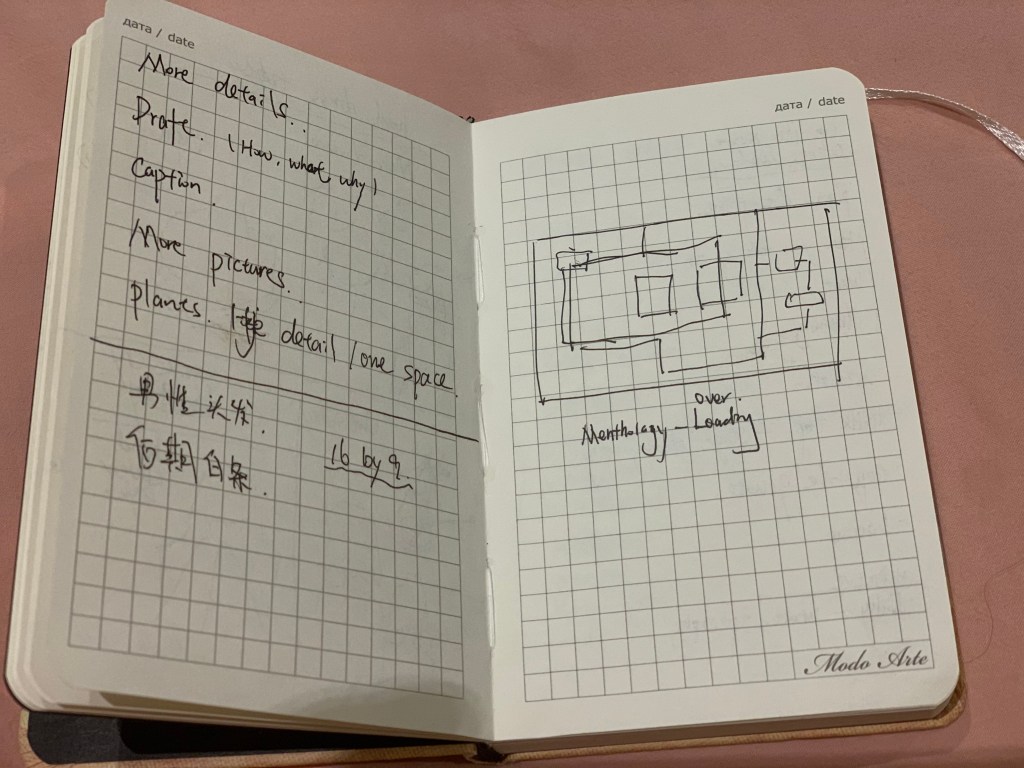 дата / date
More details..
Drafe. (How, what, why)
Caption.
More pictures..
planes. 1 detail / one space.
男性头发.
白条.
16 by 9
дата / date
over.
Menthology - Loadry
Modo Arte